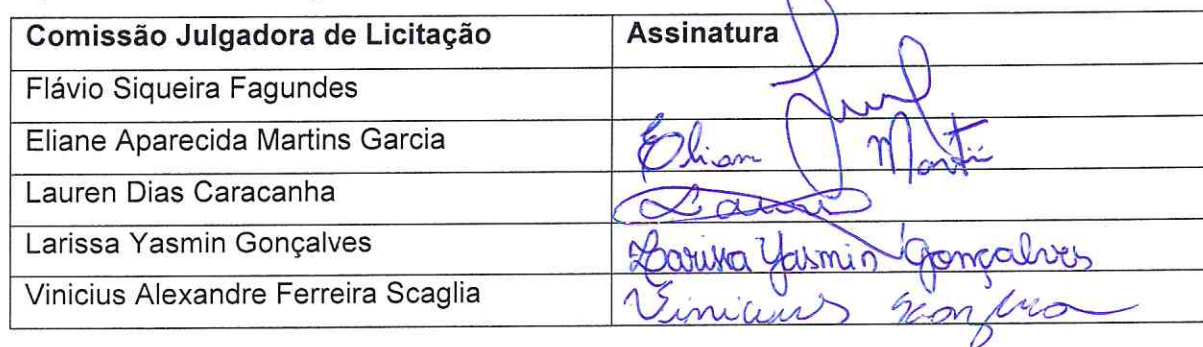 Comissão Julgadora de Licitação Assinatura
Flávio Siqueira Fagundes
Eliane Aparecida Martins Garcia
Lauren Dias Caracanha
Larissa Yasmin Gonçalves Larissa Yasmin Gonçalves
Vinicius Alexandre Ferreira Scaglia Vinicius